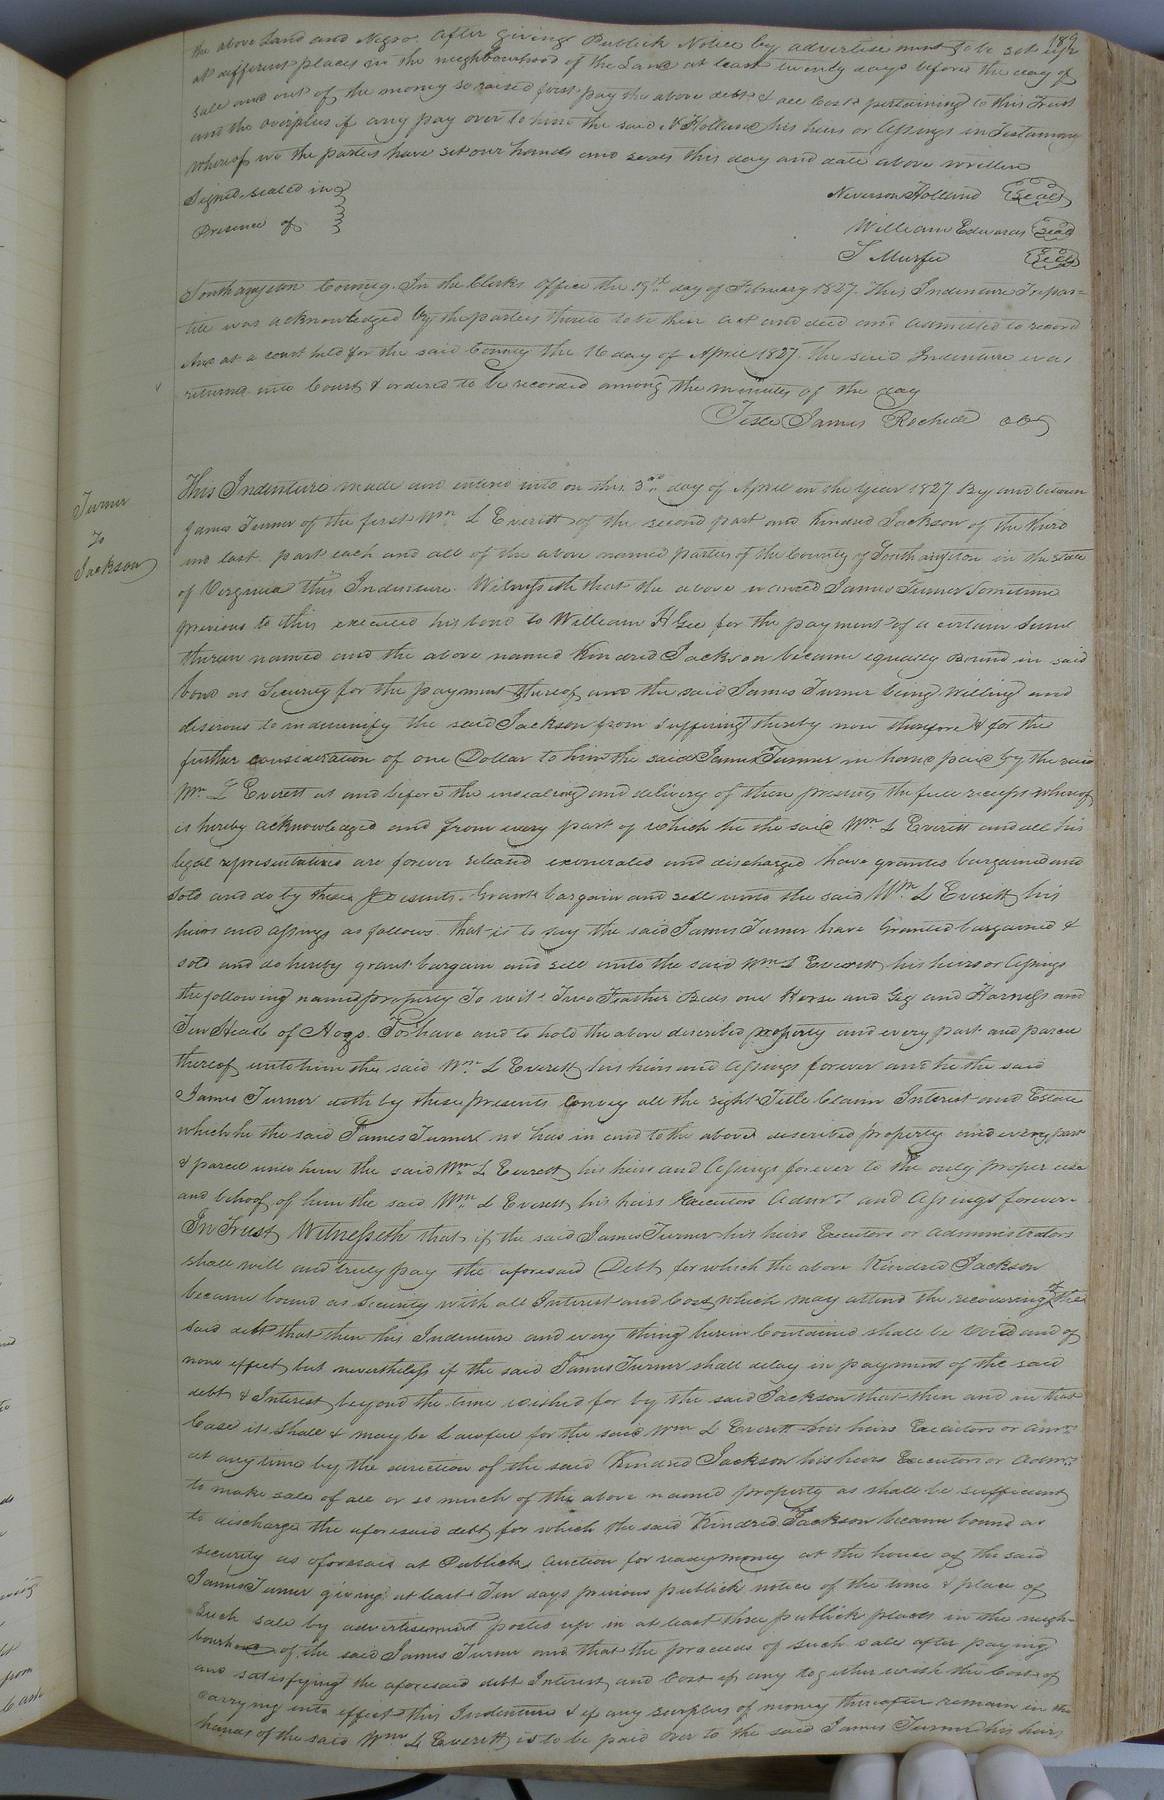 189
the above Land and Negro. After giving Publick Notice by advertisement to be set up
at different places in the neighbourhood of the Land at least twenty days before the day of
sale and out of the money so raised first pay the above debt & all Costs pertaining to this Trust
and the overplus if any pay over to him the said N Holland his heirs or Assings in Testamony
whereof we the parties have set our hands and seals this day and date above written
Signed sealed in
Presence of
Neverson Holland Seal
William Edwards Seal
S Murfee Seal
Southampton County. In the Clerks office the 15th day of February 1827. This Indenture Tripar=
tite was acknowledged by the parties thereto to be their act and deed and admitted to record
And at a court held for the said County the 16 day of April 1827. The said Indenture was
returned into Court & ordered to be recorded among the minutes of the day
Teste James Rochelle
Turner
To
Jackson
This Indenture made and entered into on this 3rd day of April in the year 1827 By and between
James Turner of the first Wm L Everett of the second part and Kindred Jackson of the third
and last part each and all of the above named parties of the County of Southampton in the State
of Virginia this Indenture. Witnesseth that the above named James Turner Sometime
previous to this executed his bond to William H Gee for the payment of a certain Sum
therein named and the above named Kindred Jackson became equally Bound in said
bond as Security for the payment thereof and the said James Turner being willing and
desirous to indemnify the said Jackson from suffering thereby now therefore & for the
further consideration of one Dollar to him the said James Turner in hand paid by the said
Wm L Everett at and before the insealing and delivery of these presents the full receipt whereof
is hereby acknowledged and from every part of which he the said Wm L Everett and all his
legal representatives are forever released exonerated and discharged have granted bargained and
sold and do by these presents Grant bargain and sell unto the said Wm L Everett his
heirs and assings as follows. that is to say the said James Turner have Granted bargained &
sold and do hereby grant bargain and sell unto the said Wm L Everett his heirs or Assings
the following named property To wit. Two Feather Beds one Horse and Gig and Harness and
Ten Head of Hogs. To have and to hold the above described property and every part and parcel
thereof unto him the said Wm L Everett his heirs and Assings forever and he the said
James Turner doth by these presents Convey all the right Title Claim Interest and Estate
which he the said James Turner no has in and to the above described property and every part
& parcel unto him the said Wm L Everett his heirs and Assings forever to the only proper use
and behoof of him the said Wm L Everett his heirs Executors Admrs and Assings forever.
In Trust Witnesseth that if the said James Turner his heirs Executors or administrators
shall will and truly pay the aforesaid Debt for which the above Kindred Jackson
became bound as Security with all Interest and Cost which may attend the recovering of the
said debt that then this Indenture and every thing herein Contained shall be void and of
none effect but nevertheless if the said James Turner shall delay in payment of the said
debt & Interest beyond the time wished for by the said Jackson that then and in that
Case it Shall & may be Lawful for the said Wm L Everett his heirs Executors or Amrs
at any time by the direction of the said Kindred Jackson his heirs Executors or Admrs
to make sale of all or so much of the above named property as shall be sufficient
to discharge the aforesaid debt for which the said Kindred Jackson became bound as
security as aforesaid at Publick auction for ready money at the house of the said
James Turner giving at least Ten days previous publick notice of the time & place of
Such sale by advertisement posted up in at least three publick places in the neigh-
bourhood of the said James Turner and that the proceeds of such sale after paying
and satisfying the aforesaid debt Interest and Cost if any together with the Cost of
carrying into effect this Indenture & if any surplus of money thereafter remain in the
hands of the said Wm L Everett is to be paid over to the said James Turner his heirs